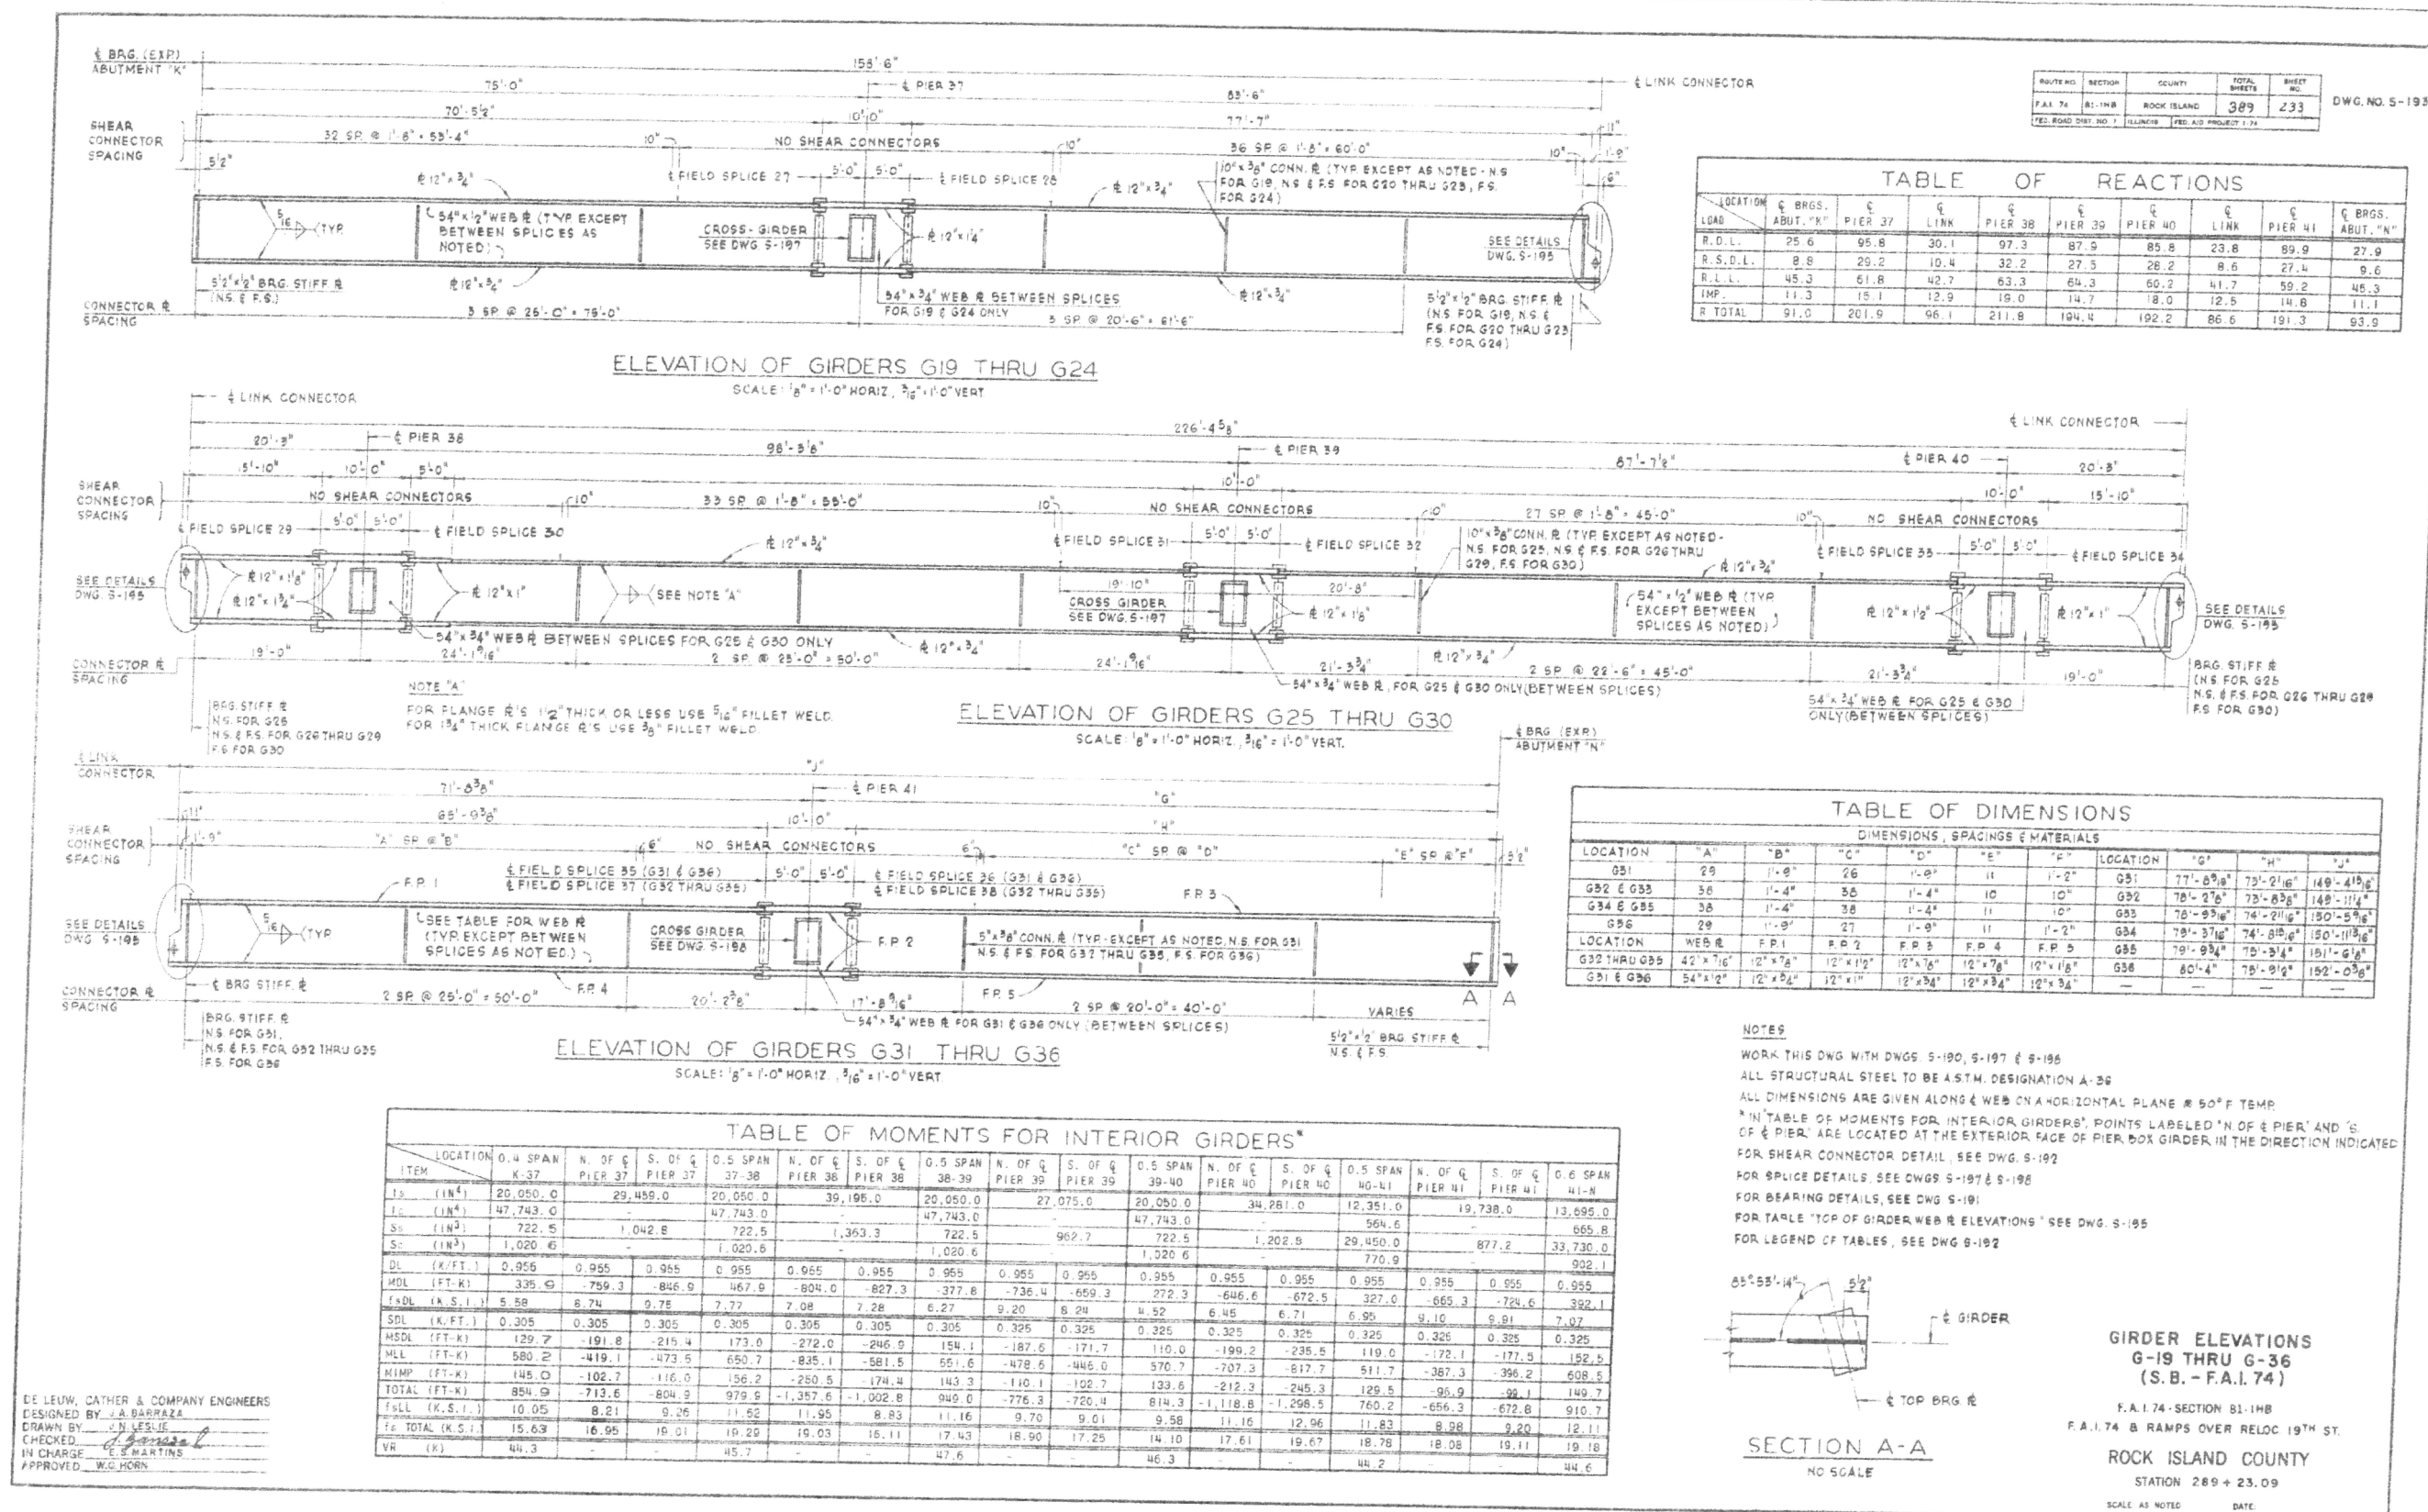 ROUTE NO. SECTION COUNTY TOTAL SHEETS SHEET NO.
F.A.I. 74 81-1HB ROCK ISLAND 389 233
FED. ROAD DIST. NO. 7 ILLINOIS FED. AID PROJECT I-74
DWG. NO. S-193
℄ BRG. (EXP)
ABUTMENT "K"
158'-6"
75'-0"
℄ PIER 37
83'-6"
℄ LINK CONNECTOR
70'-5½"
10'-0"
77'-7"
11"
SHEAR CONNECTOR SPACING
32 SP. @ 1'-8" = 53'-4"
10"
NO SHEAR CONNECTORS
10"
36 SP @ 1'-8" = 60'-0"
10"
1'-9"
5½"
℄ FIELD SPLICE 27
5'-0" 5'-0"
℄ FIELD SPLICE 28
6"
10"x⅜" CONN. ℞ (TYP. EXCEPT AS NOTED - N.S FOR G19, N.S & F.S FOR G20 THRU G23, F.S. FOR G24)
℞ 12"x¾"
℞ 12"x¾"
5/16 (TYP.
54"x½" WEB ℞ (TYP. EXCEPT BETWEEN SPLICES AS NOTED)
CROSS-GIRDER
SEE DWG S-197
℞ 12"x1¼"
SEE DETAILS
DWG. S-195
5½"x½" BRG. STIFF. ℞
(N.S. & F.S.)
℞ 12"x¾"
54"x¾" WEB ℞ BETWEEN SPLICES
FOR G19 & G24 ONLY
℞ 12"x¾"
5½"x½" BRG. STIFF. ℞
(N.S. FOR G19, N.S. &
F.S. FOR G20 THRU G23
F.S. FOR G24)
CONNECTOR ℞ SPACING
3 SP. @ 25'-0" = 75'-0"
3 SP. @ 20'-6" = 61'-6"
ELEVATION OF GIRDERS G19 THRU G24
SCALE: ⅛" = 1'-0" HORIZ., 3/16" = 1'-0" VERT
TABLE OF REACTIONS
LOCATION LOAD ℄ BRGS. ABUT. "K" ℄ PIER 37 ℄ LINK ℄ PIER 38 ℄ PIER 39 ℄ PIER 40 ℄ LINK ℄ PIER 41 ℄ BRGS. ABUT. "N"
R.D.L. 25.6 95.8 30.1 97.3 87.9 85.8 23.8 89.9 27.9
R.S.D.L. 8.8 29.2 10.4 32.2 27.5 28.2 8.6 27.4 9.6
R.L.L. 45.3 61.8 42.7 63.3 64.3 60.2 41.7 59.2 45.3
IMP. 11.3 15.1 12.9 19.0 14.7 18.0 12.5 14.8 11.1
R TOTAL 91.0 201.9 96.1 211.8 194.4 192.2 86.6 191.3 93.9
℄ LINK CONNECTOR
226'-4⅝"
℄ LINK CONNECTOR
20'-3"
℄ PIER 38
98'-3⅛"
℄ PIER 39
87'-7½"
℄ PIER 40
20'-3"
15'-10"
10'-0"
5'-0"
10'-0"
10'-0"
15'-10"
SHEAR CONNECTOR SPACING
NO SHEAR CONNECTORS
10"
33 SP. @ 1'-8" = 55'-0"
10"
NO SHEAR CONNECTORS
10"
27 SP. @ 1'-8" = 45'-0"
10"
NO SHEAR CONNECTORS
℄ FIELD SPLICE 29
5'-0" 5'-0"
℄ FIELD SPLICE 30
℞ 12"x¾"
℄ FIELD SPLICE 31
5'-0" 5'-0"
℄ FIELD SPLICE 32
10"x⅜" CONN. ℞ (TYP. EXCEPT AS NOTED - N.S. FOR G25, N.S & F.S. FOR G26 THRU G29, F.S. FOR G30)
℞ 12"x¾"
℄ FIELD SPLICE 33
5'-0" 5'-0"
℄ FIELD SPLICE 34
SEE DETAILS
DWG. S-195
℞ 12"x1⅛"
℞ 12"x1¾"
℞ 12"x1"
(SEE NOTE "A"
19'-10"
CROSS GIRDER
SEE DWG. S-197
20'-8"
℞ 12"x1⅛"
54"x½" WEB ℞ (TYP. EXCEPT BETWEEN SPLICES AS NOTED)
℞ 12"x1½"
℞ 12"x1"
SEE DETAILS
DWG. S-195
54"x¾" WEB ℞ BETWEEN SPLICES FOR G25 & G30 ONLY
℞ 12"x¾"
℞ 12"x¾"
CONNECTOR ℞ SPACING
19'-0"
24'-1 9/16"
2 SP. @ 25'-0" = 50'-0"
24'-1 9/16"
21'-3¾"
2 SP @ 22'-6" = 45'-0"
21'-3¾"
19'-0"
54"x¾" WEB ℞, FOR G25 & G30 ONLY (BETWEEN SPLICES)
54"x¾" WEB ℞ FOR G25 & G30
ONLY (BETWEEN SPLICES)
BRG. STIFF ℞
(N.S. FOR G25
N.S. & F.S. FOR G26 THRU G29
F.S FOR G30)
BRG. STIFF ℞
N.S. FOR G25
N.S. & F.S. FOR G26 THRU G29
F.S FOR G30
NOTE "A"
FOR FLANGE ℞'S 1½" THICK OR LESS USE 5/16" FILLET WELD.
FOR 1¾" THICK FLANGE ℞'S USE ⅜" FILLET WELD.
ELEVATION OF GIRDERS G25 THRU G30
SCALE: ⅛" = 1'-0" HORIZ., 3/16" = 1'-0" VERT.
℄ LINK CONNECTOR
"J"
℄ BRG (EXP.)
ABUTMENT "N"
71'-8⅜"
℄ PIER 41
"G"
11"
65'-9⅜"
10'-0"
"H"
SHEAR CONNECTOR SPACING
1'-9"
"A" SP @ "B"
6"
NO SHEAR CONNECTORS
6"
"C" SP. @ "D"
"E" SP @ "F"
5½"
F.P. 1
℄ FIELD SPLICE 35 (G31 & G36)
℄ FIELD SPLICE 37 (G32 THRU G35)
5'-0" 5'-0"
℄ FIELD SPLICE 36 (G31 & G36)
℄ FIELD SPLICE 38 (G32 THRU G35)
F.P. 3
SEE DETAILS
DWG. S-195
5/16 (TYP.
SEE TABLE FOR WEB ℞ (TYP. EXCEPT BETWEEN SPLICES AS NOTED.)
CROSS GIRDER
SEE DWG. S-198
F.P. 2
5"x⅜" CONN. ℞ (TYP. - EXCEPT AS NOTED, N.S. FOR G31
N.S. & F.S. FOR G32 THRU G35, F.S. FOR G36)
A A
℄ BRG STIFF. ℞
F.P. 4
F.P. 5
CONNECTOR ℞ SPACING
2 SP. @ 25'-0" = 50'-0"
20'-2⅜"
17'-8 9/16"
2 SP @ 20'-0" = 40'-0"
VARIES
BRG. STIFF. ℞
N.S FOR G31,
N.S. & F.S. FOR G32 THRU G35
F.S. FOR G36
54"x¾" WEB ℞ FOR G31 & G36 ONLY (BETWEEN SPLICES)
5½"x½" BRG. STIFF ℞
N.S. & F.S.
ELEVATION OF GIRDERS G31 THRU G36
SCALE: ⅛" = 1'-0" HORIZ., 3/16" = 1'-0" VERT
TABLE OF DIMENSIONS
DIMENSIONS, SPACINGS & MATERIALS
LOCATION "A" "B" "C" "D" "E" "F" LOCATION "G" "H" "J"
G31 29 1'-9" 26 1'-9" 11 1'-2" G31
G32 & G33 38 1'-4" 38 1'-4" 10 10" G32 78'-2⅞" 73'-8⅜" 149'-11¼"
G34 & G35 38 1'-4" 38 1'-4" 11 10" G33
G36 29 1'-9" 27 1'-9" 11 1'-2" G34
LOCATION WEB ℞ F.P. 1 F.P. 2 F.P. 3 F.P. 4 F.P. 5 G35 79'-9¾" 75'-3¼" 151'-6⅛"
G32 THRU G35 42"x7/16" 12"x⅞" 12"x1½" 12"x⅞" 12"x⅞" 12"x1⅛" G36 80'-4" 75'-9½" 152'-0⅜"
G31 & G36 54"x½" 12"x¾" 12"x1" 12"x¾" 12"x¾" 12"x¾" — — — —
NOTES
WORK THIS DWG. WITH DWGS. S-190, S-197 & S-198
ALL STRUCTURAL STEEL TO BE A.S.T.M. DESIGNATION A-36
ALL DIMENSIONS ARE GIVEN ALONG ℄ WEB ON A HORIZONTAL PLANE @ 50° F TEMP.
* IN "TABLE OF MOMENTS FOR INTERIOR GIRDERS", POINTS LABELED "N. OF ℄ PIER" AND "S. OF ℄ PIER" ARE LOCATED AT THE EXTERIOR FACE OF PIER BOX GIRDER IN THE DIRECTION INDICATED
FOR SHEAR CONNECTOR DETAIL, SEE DWG. S-192
FOR SPLICE DETAILS, SEE DWGS. S-197 & S-198
FOR BEARING DETAILS, SEE DWG S-191
FOR TABLE "TOP OF GIRDER WEB ℞ ELEVATIONS" SEE DWG. S-195
FOR LEGEND OF TABLES, SEE DWG S-192
TABLE OF MOMENTS FOR INTERIOR GIRDERS*
LOCATION ITEM 0.4 SPAN K-37 N. OF ℄ PIER 37 S. OF ℄ PIER 37 0.5 SPAN 37-38 N. OF ℄ PIER 38 S. OF ℄ PIER 38 0.5 SPAN 38-39 N. OF ℄ PIER 39 S. OF ℄ PIER 39 0.5 SPAN 39-40 N. OF ℄ PIER 40 S. OF ℄ PIER 40 0.5 SPAN 40-41 N. OF ℄ PIER 41 S. OF ℄ PIER 41 0.6 SPAN 41-N
Is (IN⁴) 20,050.0 29,459.0 20,050.0 39,195.0 20,050.0 27,075.0 20,050.0 34,281.0 12,351.0 19,738.0 13,695.0
Ic (IN⁴) 47,743.0 - 47,743.0 - 47,743.0 - 47,743.0 - 564.6 - 665.8
Ss (IN³) 722.5 1,042.8 722.5 1,363.3 722.5 962.7 722.5 1,202.8 29,450.0 877.2 33,730.0
Sc (IN³) 1,020.6 - 1,020.6 - 1,020.6 - 1,020.6 - 770.9 - 902.1
DL (K/FT.) 0.955 0.955 0.955 0.955 0.955 0.955 0.955 0.955 0.955 0.955 0.955 0.955 0.955 0.955 0.955 0.955
MDL (FT-K) 335.9 -759.3 -846.9 467.9 -804.0 -827.3 -377.8 -736.4 -659.3 272.3 -646.6 -672.5 327.0 -665.3 -724.6 392.1
fsDL (K.S.I.) 5.58 8.74 9.75 7.77 7.08 7.28 6.27 9.20 8.24 4.52 6.45 6.71 6.95 9.10 9.91 7.07
SDL (K/FT.) 0.305 0.305 0.305 0.305 0.305 0.305 0.305 0.325 0.325 0.325 0.325 0.325 0.325 0.325 0.325 0.325
MSDL (FT-K) 129.7 -191.8 -215.4 173.0 -272.0 -246.9 154.1 -187.6 -171.7 110.0 -199.2 -235.5 119.0 -172.1 -177.5 152.5
MLL (FT-K) 580.2 -419.1 -473.5 650.7 -835.1 -581.5 551.6 -478.6 -446.0 570.7 -707.3 -817.7 511.7 -387.3 -396.2 608.5
MIMP (FT-K) 145.0 -102.7 -116.0 156.2 -250.5 -174.4 143.3 -110.1 -102.7 133.6 -212.3 -245.3 129.5 -96.9 -99.1 149.7
TOTAL (FT-K) 854.9 -713.6 -804.9 979.9 -1,357.6 -1,002.8 949.0 -776.3 -720.4 814.3 -1,118.8 -1,298.5 760.2 -656.3 -672.8 910.7
fsLL (K.S.I.) 10.05 8.21 9.26 11.52 11.95 8.83 11.16 9.70 9.01 9.58 11.16 12.96 11.83 8.98 9.20 12.11
fs TOTAL (K.S.I.) 15.63 16.95 19.01 19.29 19.03 16.11 17.43 18.90 17.25 14.10 17.61 19.67 18.78 18.08 19.11 19.18
VR (K) 44.3 - - 45.7 - - 47.6 - - 46.3 - - 44.2 - - 44.6
85°-53'-14"
5½"
℄ GIRDER
℄ TOP BRG. ℞
SECTION A-A
NO SCALE
GIRDER ELEVATIONS
G-19 THRU G-36
(S.B. - F.A.I. 74)
F.A.I. 74 - SECTION 81-1HB
F.A.I. 74 & RAMPS OVER RELOC 19TH ST.
ROCK ISLAND COUNTY
STATION 289 + 23.09
SCALE AS NOTED DATE:
DE LEUW, CATHER & COMPANY ENGINEERS
DESIGNED BY J.A. BARRAZA
DRAWN BY J.N. LESLIE
CHECKED
IN CHARGE E.S. MARTINS
APPROVED W.G. HORN